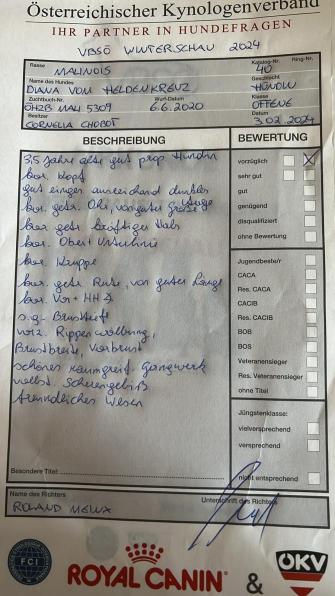 Österreichischer Kynologenverband
IHR PARTNER IN HUNDEFRAGEN
VBSÖ WINTERSCHAU 2024
Rasse
MALINOIS
Katalog-Nr.
Ring-Nr.
110
Name des Hundes
DIANA VOM HELDENKREUZ
Geschlecht
HÜNDIN
Zuchtbuch-Nr.
ÖHZB MALI 5309
Wurf-Datum
6.6.2020
Klasse
OFFENE
Besitzer
CORNELIA CHOBOT
Datum
3.02.2024
BESCHREIBUNG
BEWERTUNG
3,5 Jahre alte, gut prop. Hündin
kor. Kopf
gut einges. ausreichend dunkles Auge
kor. getr. Ohr, von guter Größe
kor. getr. kräftiger Hals
kor. Ober + Unterlinie
kor. Kruppe
kor. getr. Rute, von guter Länge
kor. Vor + HH
s.g. Brusttiefe
vorz. Rippenwölbung,
Brustbreite, Vorbrust
schönes raumgreif. Gangwerk
vollst. Scherengebiß
freundliches Wesen
vorzüglich X
sehr gut
gut
genügend
disqualifiziert
ohne Bewertung
Jugendbeste/r
CACA
Res. CACA
CACIB
Res. CACIB
BOB
BOS
Veteranensieger
Res. Veteranensieger
ohne Titel
Jüngstenklasse:
vielversprechend
versprechend
nicht entsprechend
Besondere Titel:
Name des Richters
ROLAND
Unterschrift des Richters
FCI
ROYAL CANIN
&
ÖKV